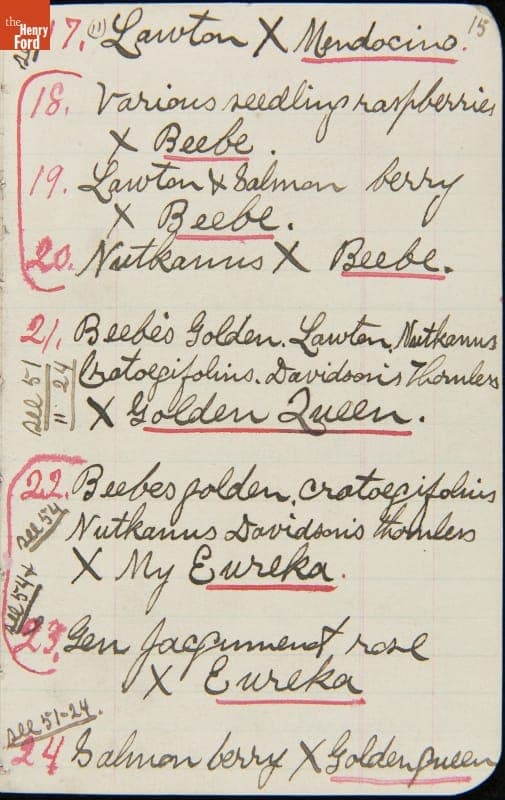 the
Henry
Ford
15
see
17. (11) Lawton X Mendocino.
18. Various seedling raspberries
X Beebe.
19. Lawton & Salmon berry
X Beebe.
20. Nutkanus X Beebe.
21. Beebe's Golden. Lawton. Nutkanus
see 51
" 24
Cratoegifolius. Davidson's Thornless
X Golden Queen.
22. Beebes golden. cratoegifolius
see 54
Nutkanus Davidson's thornless
X My Eureka.
see 54 x
23. Gen Jacqument rose
X Eureka
see 51-24.
24 Salmon berry X Golden queen